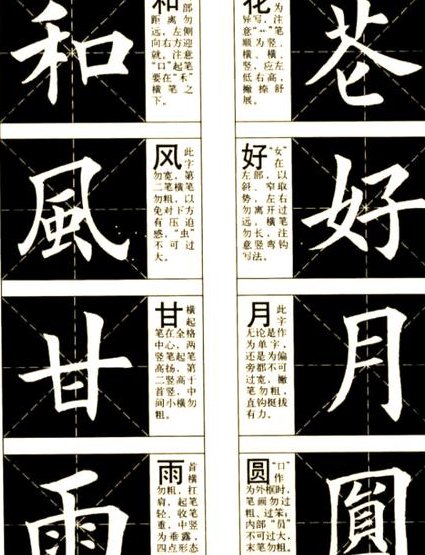 和
和 部
距离勿
远，左侧
向右方迎
就，注意
“口”起笔
要在“禾”
横笔之
下。
風
风 此字
勿宽，第
二笔横笔
勿粗，以
免对下方
有压迫
感，“虫”
不可过
大。
甘
甘 横起
笔在全格
中心，两
竖笔起笔
高扬，第
二竖高于
首竖，中
间小横勿
粗。
雨
雨 首横
勿粗，扛
肩，起笔
轻，收笔
重，中竖
为垂露，
四点形态
花
异写，注
意“艹”笔
顺为竖、
横、横、
竖，应左
低右高，
撇捺舒
展。
花
好 “女”在
左部，以
斜、窄取
势，左右
勿离开过
远，横笔
勿长，注
意竖弯钩
写法。
好
月 此字
无论是作
为单字，
还是为偏
旁都不可
过宽，撇
笔勿粗，
直钩挺拔
有力。
月
圆 “口”作
为外框时，
笔画勿过
粗、过笨；
内部“员”
不可过大，
末笔勿粗
圓